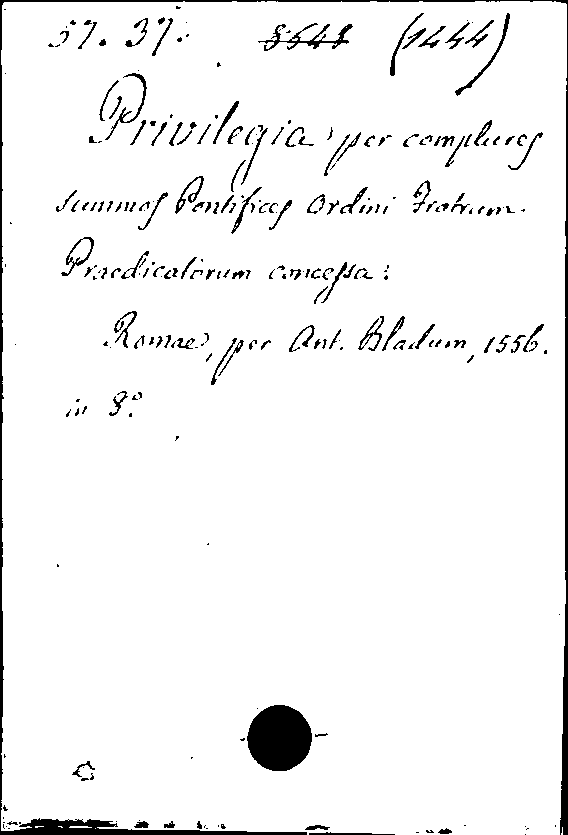 57. 37. 8548 (1444)
Privilegia per complures
summos Pontifices Ordini Fratrum
Praedicatorum concessa:
Romae, per Ant. Bladum, 1556.
in 8.º